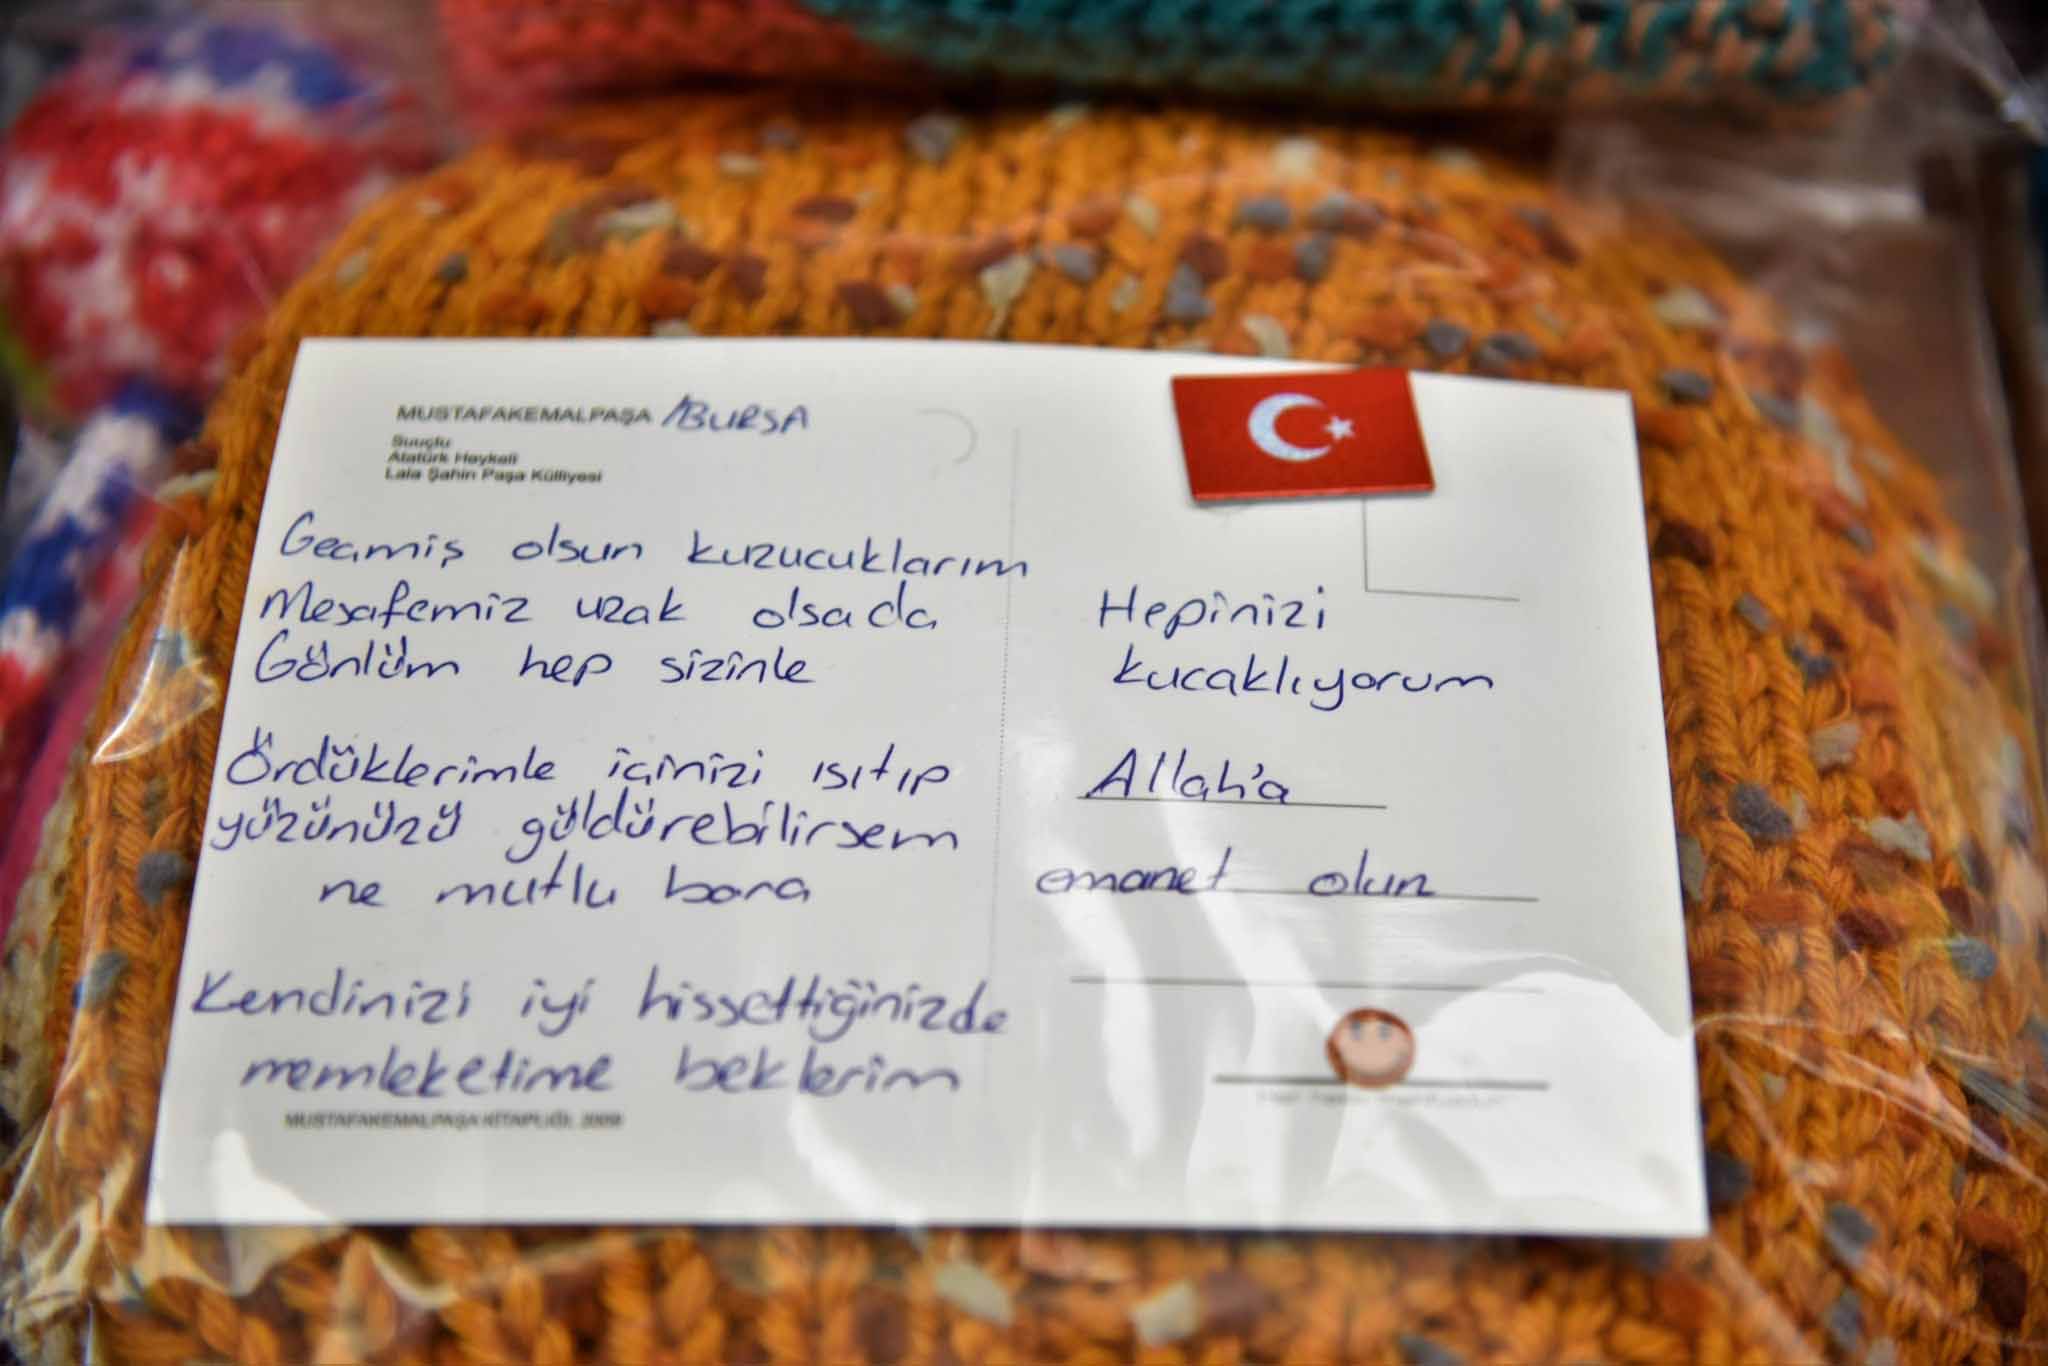 MUSTAFAKEMALPAŞA /BURSA
Suuçtu
Atatürk Heykeli
Lala Şahin Paşa Külliyesi
Geçmiş olsun kuzucuklarım
Mesafemiz uzak olsada
Gönlüm hep sizinle
Ördüklerimle içinizi ısıtıp
yüzünüzü güldürebilirsem
ne mutlu bana
Kendinizi iyi hissettiğinizde
memleketime beklerim
MUSTAFAKEMALPAŞA KİTAPLIĞI, 2009
Hepinizi
kucaklıyorum
Allah'a
emanet olun